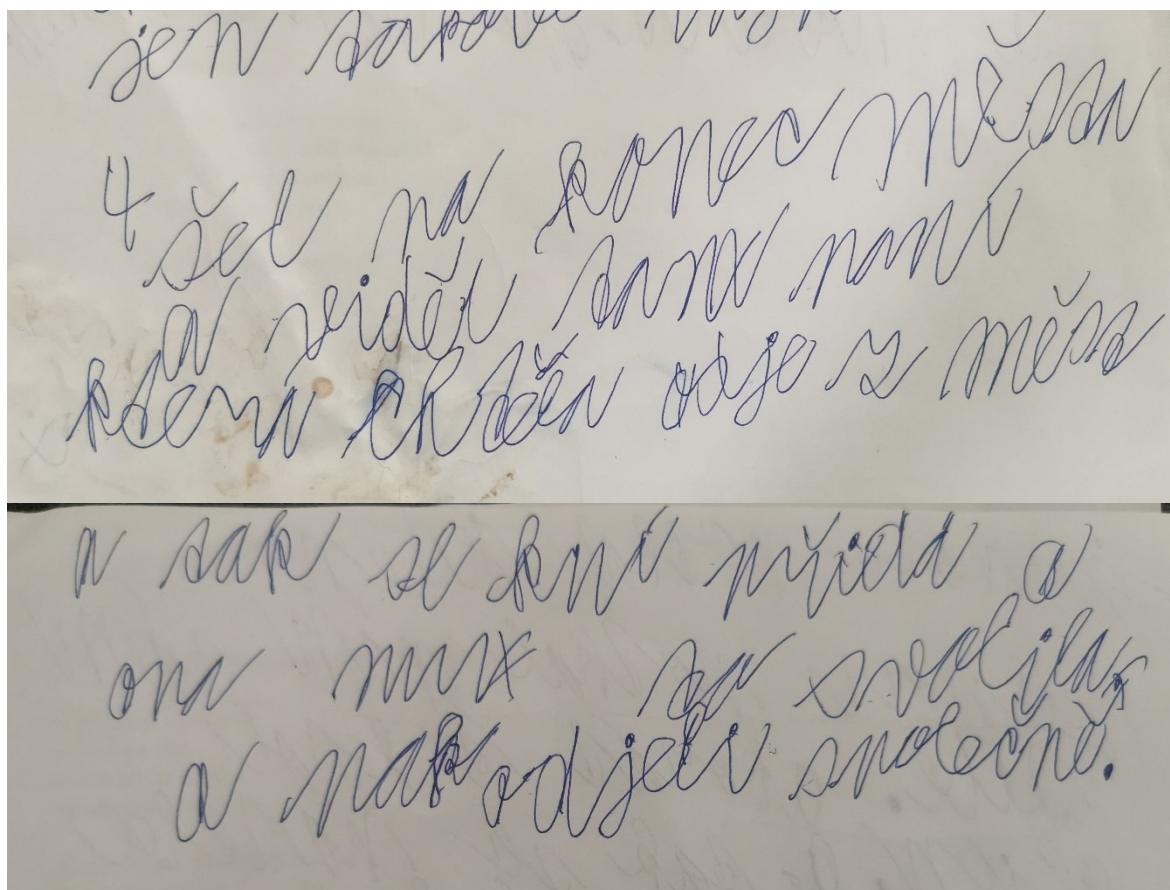 jen
4 šel na konec města
a viděl tam paní
která chtěla odje z měst
a tak se kní přidal a
ona mu to svolila,
a pak odjeli společně.